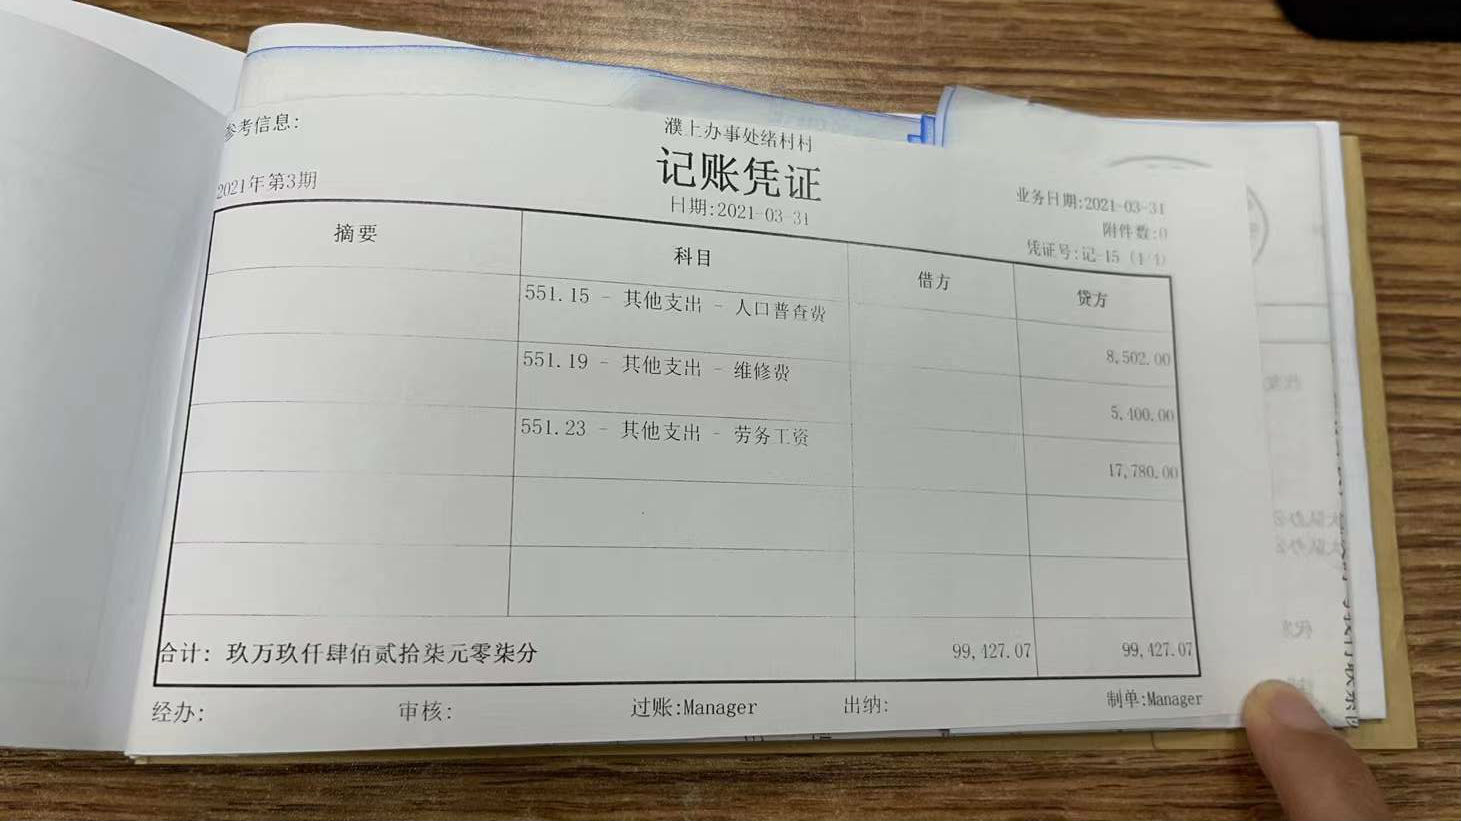 参考信息:
濮上办事处绪村村
记账凭证
2021年第3期
日期:2021-03-31
业务日期:2021-03-31
附件数:0
凭证号:记-15 (4/4)
摘要 科目 借方 贷方
551.15 - 其他支出 - 人口普查费 8,502.00
551.19 - 其他支出 - 维修费 5,400.00
551.23 - 其他支出 - 劳务工资 17,780.00
合计: 玖万玖仟肆佰贰拾柒元零柒分 99,427.07 99,427.07
经办: 审核: 过账:Manager 出纳: 制单:Manager